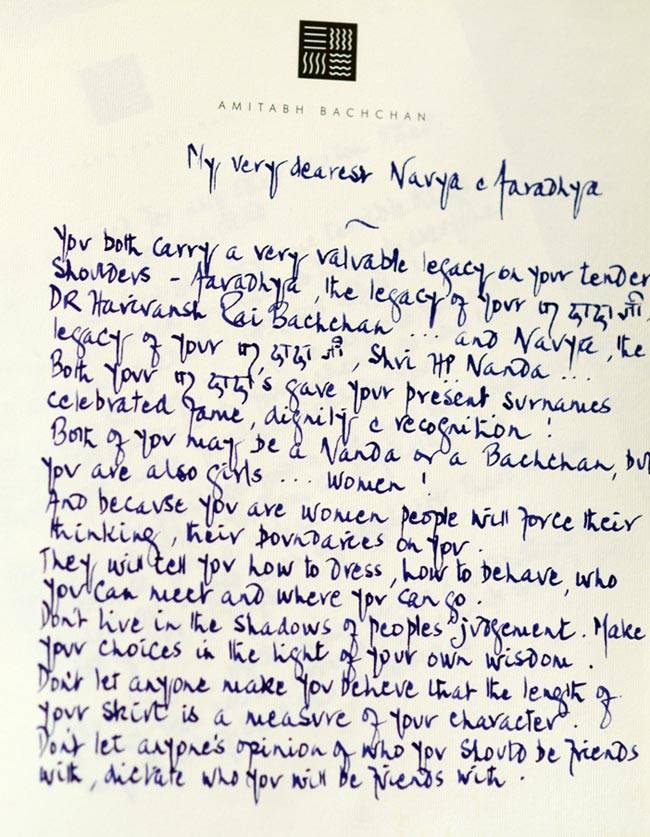 AMITABH BACHCHAN
My very dearest Navya & Aaradhya
You both carry a very valuable legacy on your tender
shoulders - Aaradhya, the legacy of your दादा जी,
DR Harivansh Rai Bachchan ... and Navya, the
legacy of your दादा जी, Shri HP Nanda ...
Both your दादा's gave your present surnames
celebrated fame, dignity & recognition!
Both of you may be a Nanda or a Bachchan, but
you are also girls ... women!
And because you are women people will force their
thinking, their boundaries on you.
They will tell you how to dress, how to behave, who
you can meet and where you can go.
Don't live in the shadows of peoples' judgement. Make
your choices in the light of your own wisdom.
Don't let anyone make you believe that the length of
your skirt is a measure of your character.
Don't let anyone's opinion of who you should be friends
with, dictate who you will be friends with.